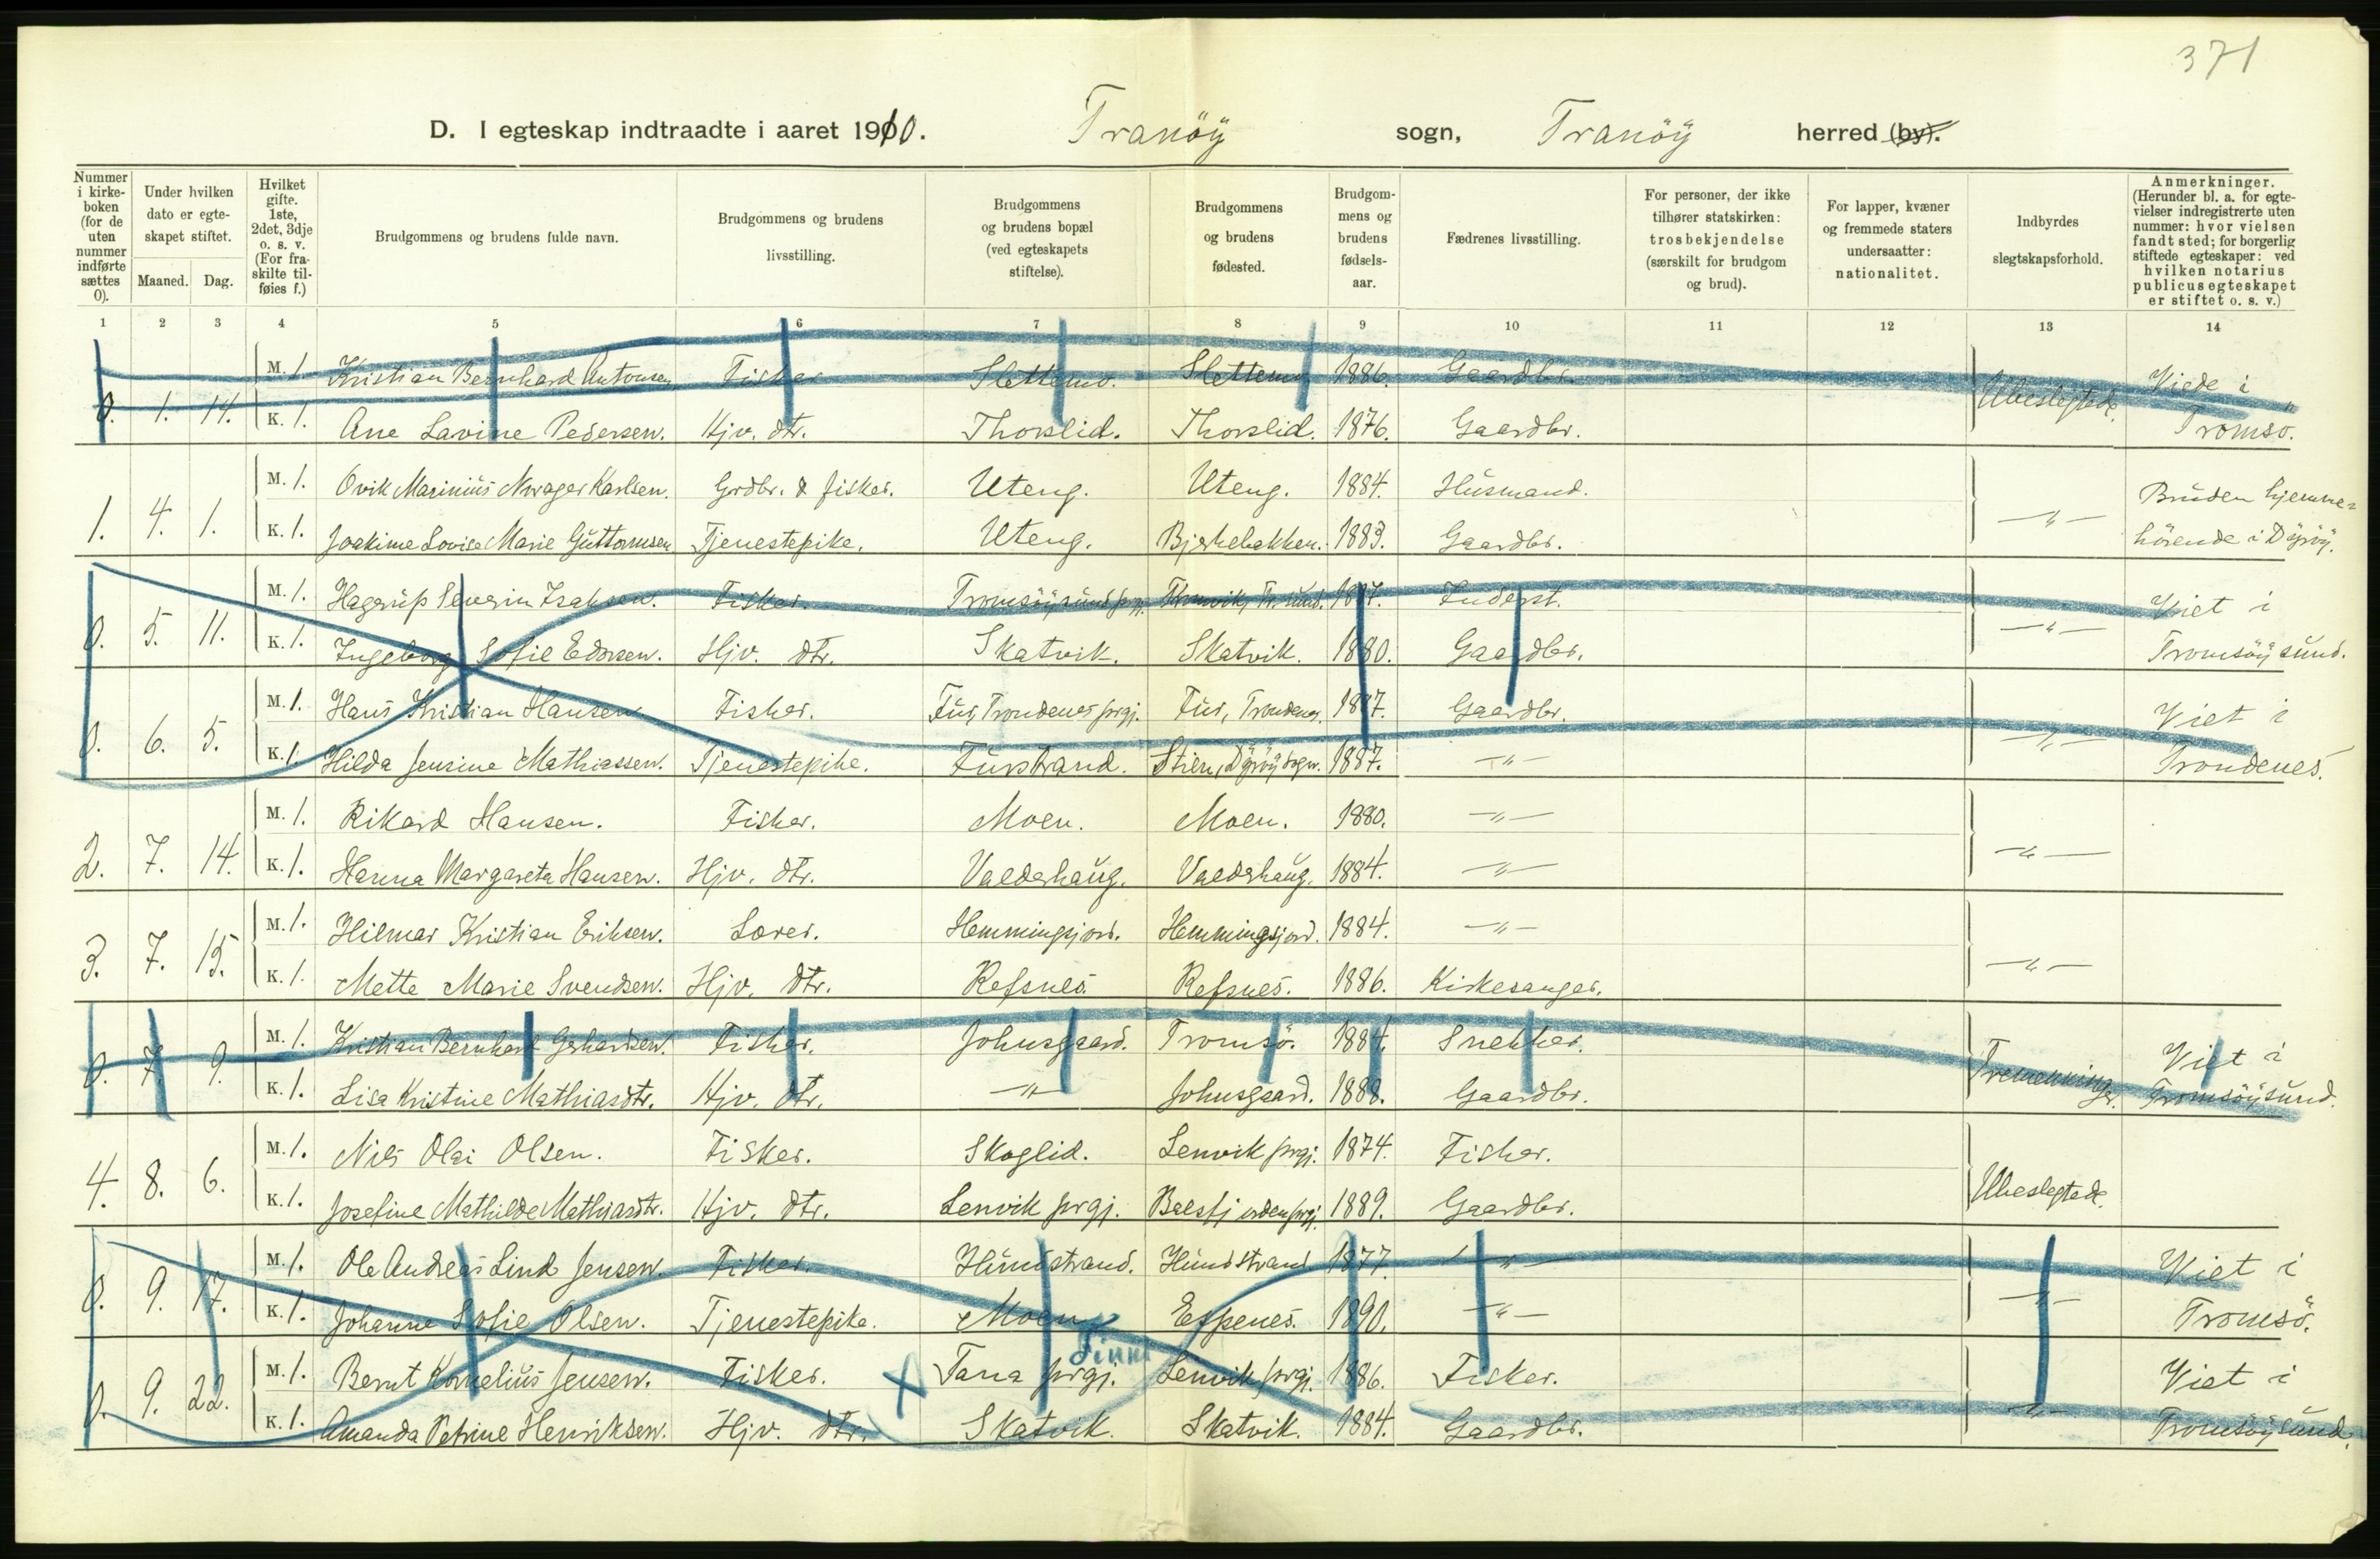 371
D. I egteskap indtraadte i aaret 1910. Tranöy sogn, Tranöy herred (by).
Nummer i kirkeboken (for de uten nummer indførte sættes 0).
Under hvilken dato er egteskapet stiftet.
Maaned. Dag.
Hvilket gifte. 1ste, 2det, 3dje o. s. v. (For fraskilte tilføies f.)
Brudgommens og brudens fulde navn.
Brudgommens og brudens livsstilling.
Brudgommens og brudens bopæl (ved egteskapets stiftelse).
Brudgommens og brudens fødested.
Brudgommens og brudens fødselsaar.
Fædrenes livsstilling.
For personer, der ikke tilhører statskirken: trosbekjendelse (særskilt for brudgom og brud).
For lapper, kvæner og fremmede staters undersaatter: nationalitet.
Indbyrdes slegtskapsforhold.
Anmerkninger. (Herunder bl. a. for egtevielser indregistrerte uten nummer: hvor vielsen fandt sted; for borgerlig stiftede egteskaper: ved hvilken notarius publicus egteskapet er stiftet o. s. v.)
1 2 3 4 5 6 7 8 9 10 11 12 13 14
M. 1. Kristian Bernhard Antonsen Fisker Slettemo. Slettemo 1886. Gaardbr. Viede i
0. 1. 14. K. 1. Ane Lavine Pedersen. Hjv. dtr. Thorslid. Thorslid. 1876. Gaardbr. Ubeslegtede. Tromsö.
M. 1. Ovik Marinius Norager Karlsen. Grdbr. & fisker. Uteng. Uteng. 1884. Husmand. Bruden hjemme=
1. 4. 1. K. 1. Joakime Lovise Marie Guttormsen Tjenestepike. Uteng. Bjerkebakken. 1883. Gaardbr. —"— hörende i Döröy.
M. 1. Hagerup Severin Isaksen. Fisker. Tromsöysund prgj. 1887. Inderst. Viet i
0. 5. 11. K. 1. Ingeborg Sofie Edorsen. Hjv. dtr. Skatvik. Skatvik. 1880. Gaardbr. —"— Tromsöysund.
M. 1. Hans Kristian Hansen Fisker. Fus, Trondenes prgj. Fus, Trondenes. 1887. Gaardbr. Viet i
0. 6. 5. K. 1. Hilda Jensine Mathiassen. Tjenestepike. Furstrand. Stien, Döröy sogn. 1887. —"— —"— Trondenes.
M. 1. Rikard Hansen. Fisker. Moen. Moen. 1880. —"—
2. 7. 14. K. 1. Hanna Margareta Hansen. Hjv. dtr. Valderhaug. Valderhaug. 1884. —"— —"—
M. 1. Hilmar Kristian Eriksen. Lærer. Hemmingsjord. Hemmingsjord. 1884. —"—
3. 7. 15. K. 1. Mette Marie Svendsen. Hjv. dtr. Refsnes. Refsnes. 1886. Kirkesanger. —"—
M. 1. Kristian Bernhart Gerhardsen. Fisker. Johnsgaard. Tromsö. 1884. Snekker. Viet i
0. 7. 9. K. 1. Lisa Kristine Mathiasdtr. Hjv. dtr. —"— Johnsgaard. 1888. Gaardbr. Tremenninger. Tromsöysund.
M. 1. Nils Olai Olsen. Fisker. Skoglid. Lenvik prgj. 1874. Fisker.
4. 8. 6. K. 1. Josefine Mathilde Mathiasdtr. Hjv. dtr. Lenvik prgj. Balsfjorden prgj. 1889. Gaardbr. Ubeslegtede.
M. 1. Ole Andreas Lind Jensen. Fisker. Hundstrand. Hundstrand 1877. —"— Viet i
0. 9. 17. K. 1. Johanne Sofie Olsen. Tjenestepike. Moen Espenes. 1890. —"— —"— Tromsö.
Finm
M. 1. Bernt Kornelius Jensen. Fisker. X Tana prgj. Lenvik prgj. 1886. Fisker. Viet i
0. 9. 22. K. 1. Amanda Petrine Henriksen. Hjv. dtr. Skatvik. Skatvik. 1884. Gaardbr. —"— Tromsöysund.